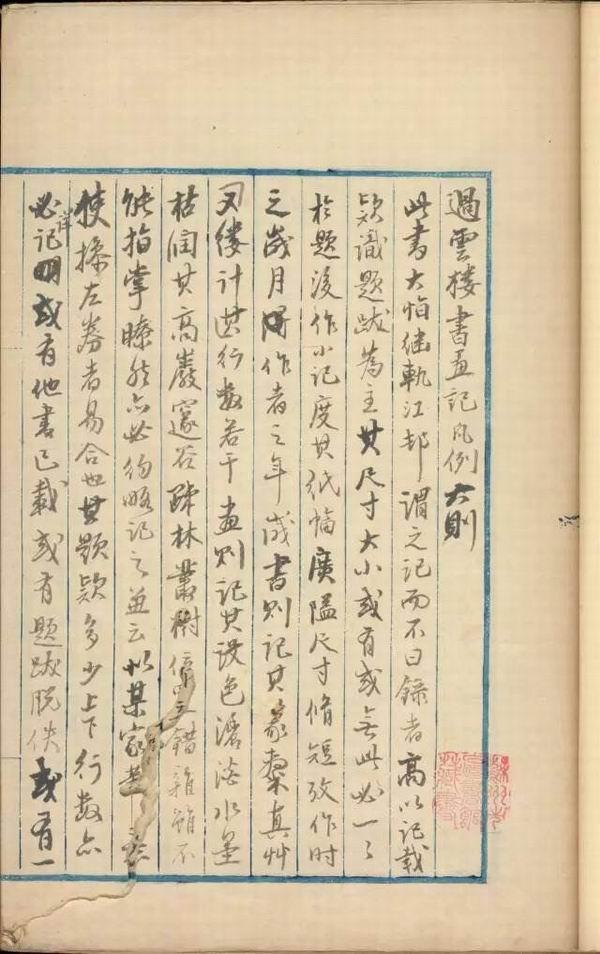 過雲楼書画記凡例六則
此書大恉繼軌江邨謂之記而不曰錄者高以記載
欵識題跋為主其尺寸大小或有或無此必一〻
於題後作小記度其紙幅廣隘尺寸脩短攷作時
之歲月得作者之年歲書則記其篆隸真艸
又縷計其行數若干画則記其設色濃淡水墨
枯潤其高巖邃谷疎林叢樹錯雜雖不
能指掌瞭然亦必約略記之並云似某家
使操左券者易合也其題欵多少上下行數亦
必詳記明或有他書已載或有題跋脫佚或有一